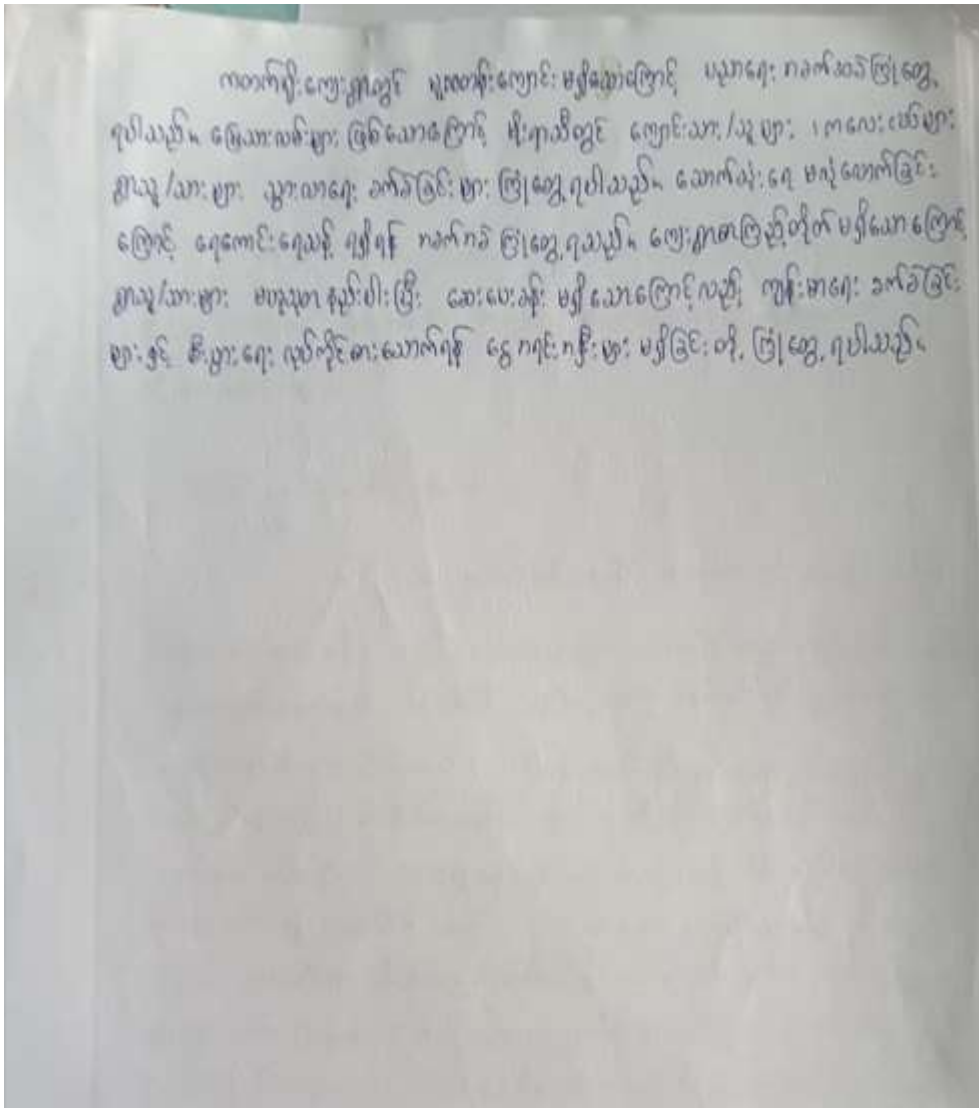 ကတက်ရိုးကျေးရွာတွင် မူလတန်းကျောင်း မရှိသောကြောင့် ပညာရေး အခက်အခဲ ကြုံတွေ့
ရပါသည်။ မြေသားလမ်းများ ဖြစ်သောကြောင့် မိုးရာသီတွင် ကျောင်းသား/သူများ ၊ ကလေးငယ်များ
ရွာသူ/သားများ သွားလာရေး ခက်ခဲခြင်းများ ကြုံတွေ့ရပါသည်။ သောက်သုံးရေ မလုံလောက်ခြင်း
ကြောင့် ရေကောင်းရေသန့် ရရှိရန် အခက်အခဲ ကြုံတွေ့ရသည်။ ကျေးရွာစာကြည့်တိုက် မရှိသောကြောင့်
ရွာသူ/သားများ ဗဟုသုတ နည်းပါးပြီး ဆေးပေးခန်း မရှိသောကြောင့်လည်း ကျန်းမာရေး ခက်ခဲခြင်း
များနှင့် စီးပွားရေး လုပ်ကိုင်စားသောက်ရန် ငွေအရင်းအနှီးများ မရှိခြင်းတို့ ကြုံတွေ့ရပါသည်။